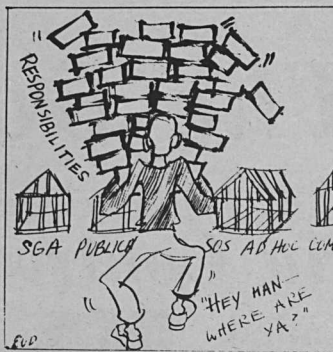 RESPONSIBILITIES
SGA PUBLICA SOS AD HOC COM
"HEY MAN—
WHERE ARE
YA?"